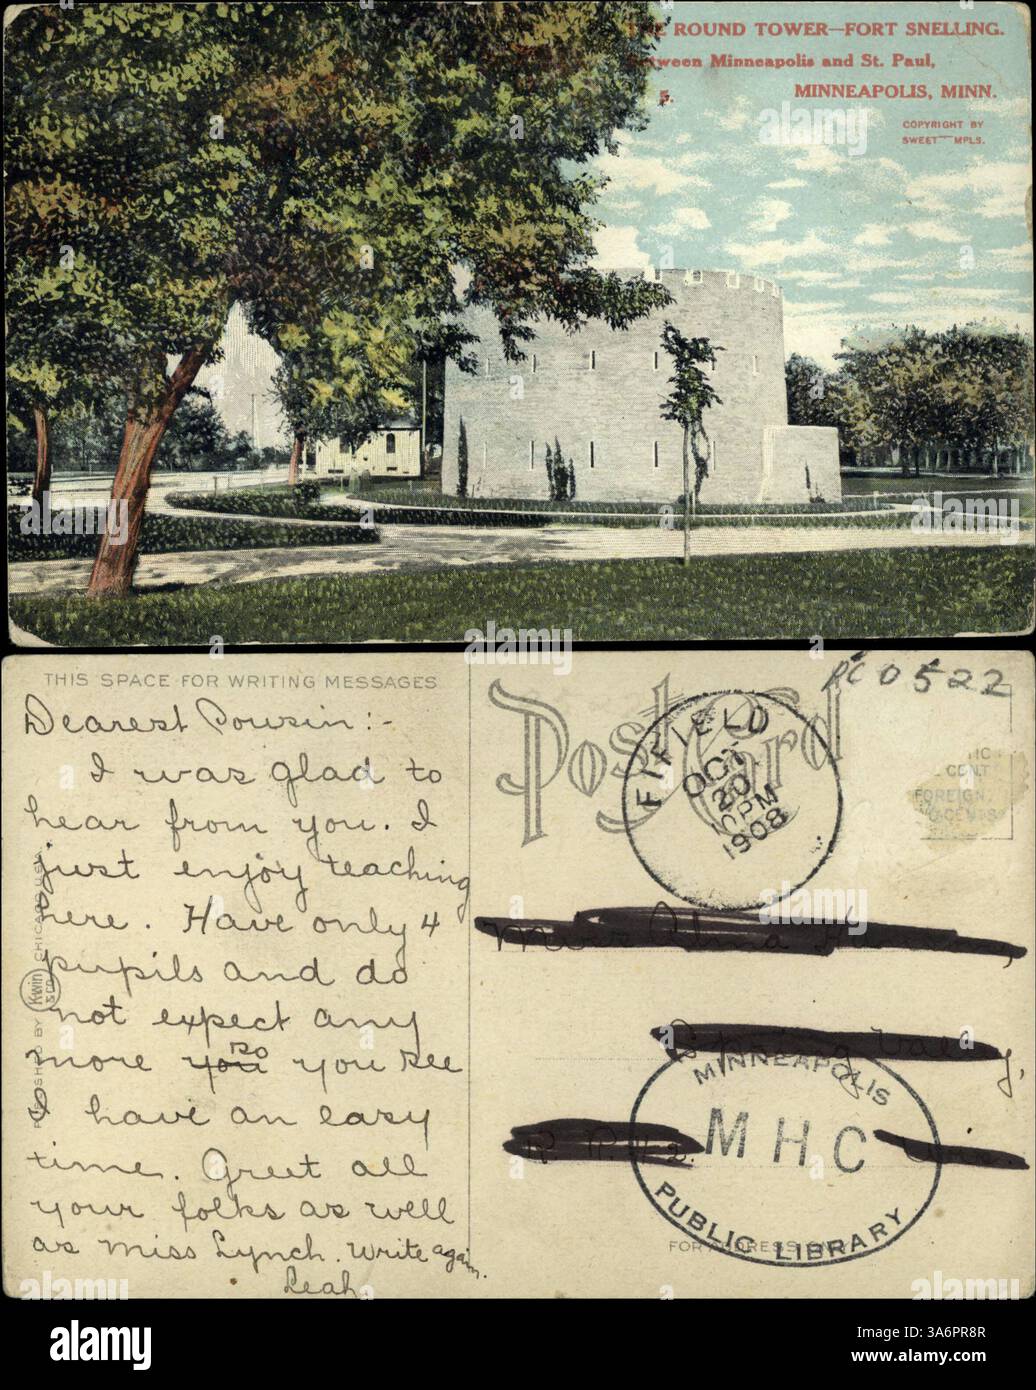 THE ROUND TOWER—FORT SNELLING.
Between Minneapolis and St. Paul,
5. MINNEAPOLIS, MINN.
COPYRIGHT BY
SWEET—MPLS.
THIS SPACE FOR WRITING MESSAGES
Dearest Cousin:-
I was glad to
hear from you. I
just enjoy teaching
here. Have only 4
pupils and do
not expect any
more you so you see
I have an easy
time. Greet all
your folks as well
as Miss Lynch. Write again.
Leah
PUBLISHED BY Kwin & Co. CHICAGO U.S.A.
Post Card
PC 0522
FIFIELD
OCT
20
PM
1908
CENT
FOREIGN,
TWO CENTS
Spring Valley,
MINNEAPOLIS
MHC
PUBLIC LIBRARY
FOR ADDRESS ONLY
alamy
Image ID: 3A6PR8R
www.alamy.com